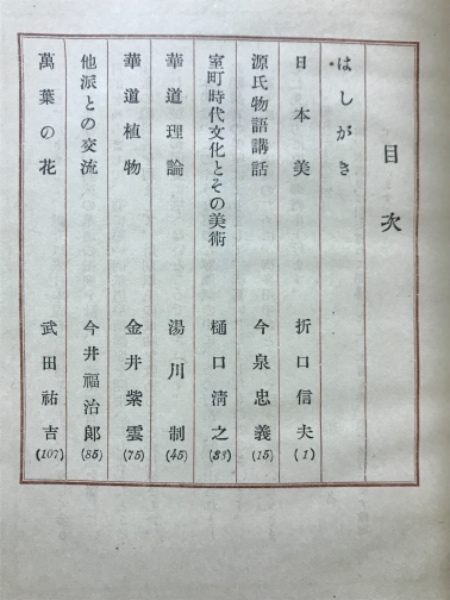 目次
はしがき
日本美 折口信夫 (1)
源氏物語講話 今泉忠義 (15)
室町時代文化とその美術 樋口淸之 (33)
華道理論 湯川制 (45)
華道植物 金井紫雲 (75)
他派との交流 今井福治郞 (85)
萬葉の花 武田祐吉 (107)